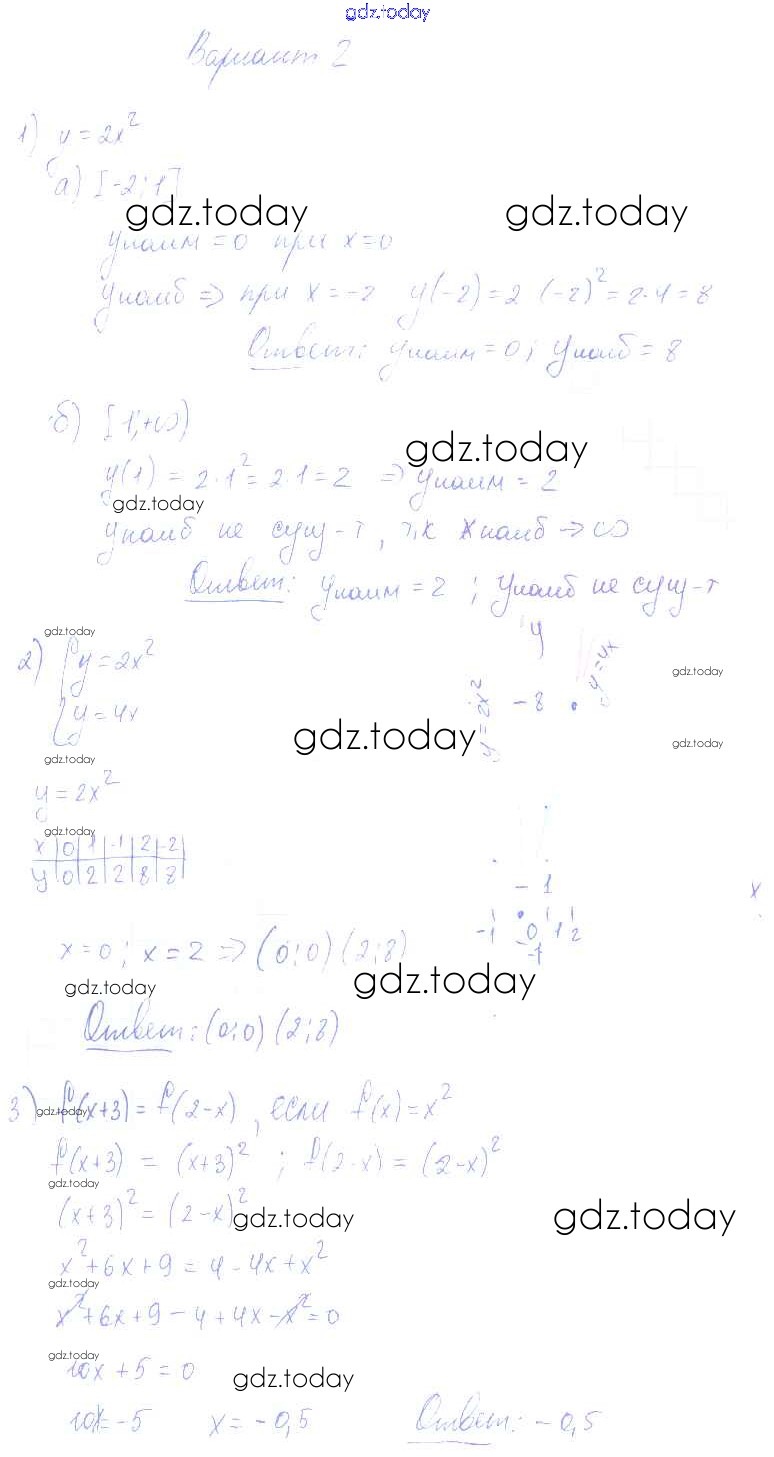 gdz.today
Вариант 2
1) y = 2x²
а) [-2; 1]
gdz.today gdz.today
yнаим = 0 при x = 0
yнаиб => при x = -2 y(-2) = 2 (-2)² = 2·4 = 8
Ответ: yнаим = 0; yнаиб = 8
б) [1; +∞)
gdz.today
y(1) = 2·1² = 2·1 = 2 => yнаим = 2
gdz.today
yнаиб не сущ-т, т.к xнаиб → ∞
Ответ: yнаим = 2; yнаиб не сущ-т
gdz.today
2) { y = 2x²
y = 4x
gdz.today
gdz.today
gdz.today
gdz.today
y = 2x²
gdz.today
x | 0 | 1 | -1 | 2 | -2 |
y | 0 | 2 | 2 | 8 | 8 |
y
y = 2x²
- 8
y = 4x
- 1
x
-1 0 1 2
-1
x = 0; x = 2 => (0; 0) (2; 8)
gdz.today gdz.today
Ответ: (0; 0) (2; 8)
3) f(x+3) = f(2-x), если f(x) = x²
gdz.today
f(x+3) = (x+3)² ; f(2-x) = (2-x)²
gdz.today
(x+3)² = (2-x)²
gdz.today gdz.today
x² + 6x + 9 = 4 - 4x + x²
gdz.today
x² + 6x + 9 - 4 + 4x - x² = 0
gdz.today
10x + 5 = 0
gdz.today
10x = -5 x = -0,5 Ответ: -0,5